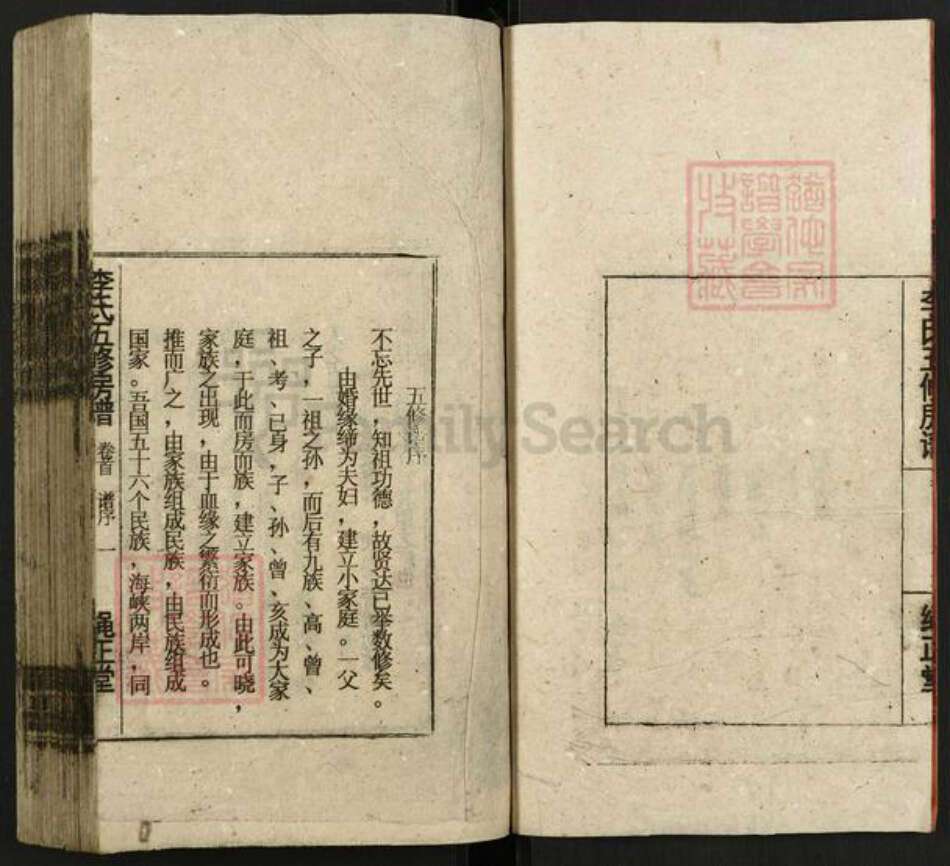 李氏五修房谱
绳正堂
五修谱序
不忘先世，知祖功德，故贤达已举数修矣。
由婚缘缔为夫妇，建立小家庭。一父
之子，一祖之孙，而后有九族、高、曾、
祖、考、己身，子、孙、曾、亥成为大家
庭，于此而房而族，建立家族。由此可晓，
家族之出现，由于血缘之繁衍而形成也。
推而广之，由家族组成民族，由民族组成
国家。吾国五十六个民族，海峡两岸，同
李氏五修房谱 卷首 谱序 一 绳正堂
FamilySearch